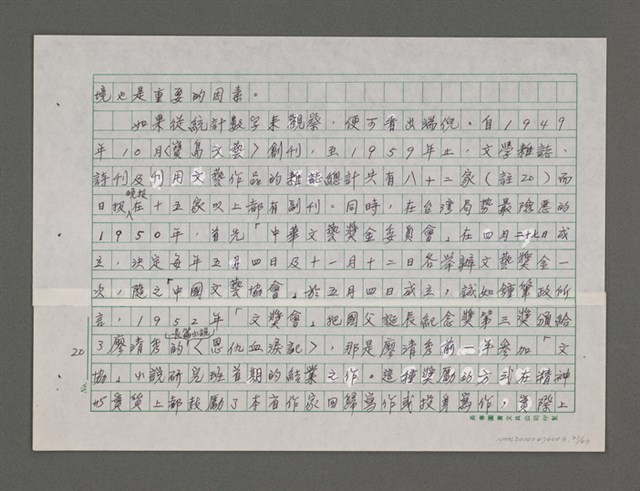 境也是重要的因素。
如果從統計數字來觀察，便可看出端倪。自1949
年10月《寶島文藝》創刊，至1959年止，文學雜誌、
詩刊及刊用文藝作品的雜誌總計共有八十二家（註20）而
晚報
日報在十五家以上都有副刊。同時，在台灣局勢最險惡的
1950年，首先「中華文藝獎金委員會」在四月二十七日成
立，決定每年五月四日及十一月十二日各舉辦文藝獎金一
次，隨之「中國文藝協會」於五月四日成立，誠如鍾肇政所
言，1952年「文獎會」把國父誕辰紀念獎第三獎頒給
（長篇小說）
了廖清秀的《恩仇血淚記》，那是廖清秀前一年參加「文
20
協」小說研究班首期的結業之作。這種獎勵的方式在精神
No.
與實質上都鼓勵了本省作家回歸寫作或投身寫作，實際上